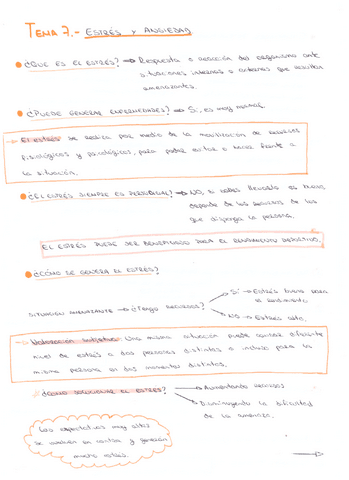 TEMA 7.- ESTRÉS Y ANSIEDAD
¿QUE ES EL ESTRÉS? → Respuesta o reacción del organismo ante
situaciones internas o externas que resultan
amenazantes.
¿PUEDE GENERAR ENFERMEDADES? → Sí, es muy normal.
→ El estrés se realiza por medio de la movilización de recursos
fisiológicos y psicológicos, para poder evitar o hacer frente a
la situación.
¿EL ESTRÉS SIEMPRE ES PERJUDICIAL? → NO, si sabes llevarlo es bueno,
depende de los recursos de los
que disponga la persona.
EL ESTRÉS PUEDE SER BENEFICIOSO PARA EL RENDIMIENTO DEPORTIVO.
¿CÓMO SE GENERA EL ESTRÉS?
SÍ → Estrés bueno para
el rendimiento
SITUACIÓN AMENAZANTE → ¿Tengo RECURSOS?
NO → Estrés alto.
→ Valoración subjetiva: Una misma situación puede causar diferente
nivel de estrés a dos personas distintas o incluso para la
misma persona en dos momentos distintos.
¿CÓMO SOLUCIONAR EL ESTRÉS?
→ Aumentando recursos
→ Disminuyendo la dificultad
de la amenaza.
Las expectativas muy altas
se vuelven en contra y generan
mucho estrés.